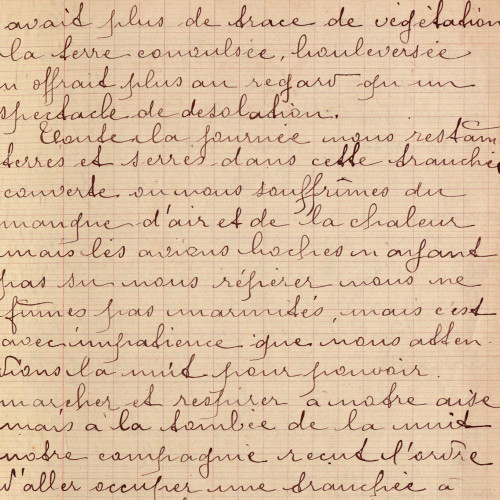 avait plus de trace de végétation
la terre convulsée, bouleversée
n offrait plus au regard qu un
spectacle de desolation.
Toute la journée nous restâm
terres et serres dans cette tranchée
couverte ou nous souffrîmes du
manque d'air et de la chaleur
mais les avions boches n ayant
pas su nous répérer nous ne
fûmes pas marmités, mais c'est
avec impatience que nous atten
dions la nuit pour pouvoir
marcher et respirer à notre aise
mais à la tombée de la nuit
notre compagnie reçut l'ordre
d'aller occuper une tranchée à